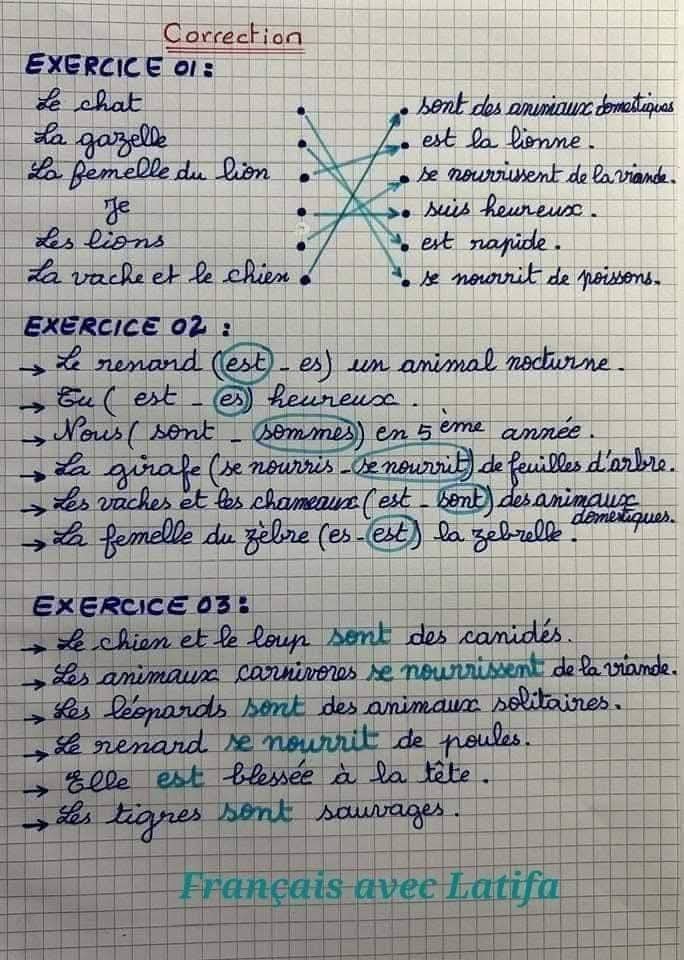 Correction
EXERCICE 01 :
Le chat sont des animaux domestiques
La gazelle est la lionne .
La femelle du lion se nourrissent de la viande.
Je suis heureux .
Les lions est rapide .
La vache et le chien se nourrit de poissons.
EXERCICE 02 :
→ Le renard (est - es) un animal nocturne .
→ Tu ( est - es) heureux .
→ Nous ( sont - sommes) en 5 ème année .
→ La girafe (se nourris - se nourrit) de feuilles d'arbre.
→ Les vaches et les chameaux (est - sont) des animaux
domestiques.
→ La femelle du zèbre (es - est) la zebrelle .
EXERCICE 03 :
→ Le chien et le loup sont des canidés.
→ Les animaux carnivores se nourrissent de la viande.
→ Les léopards sont des animaux solitaires.
→ Le renard se nourrit de poules.
→ Elle est blessée à la tête .
→ Les tigres sont sauvages .
Français avec Latifa